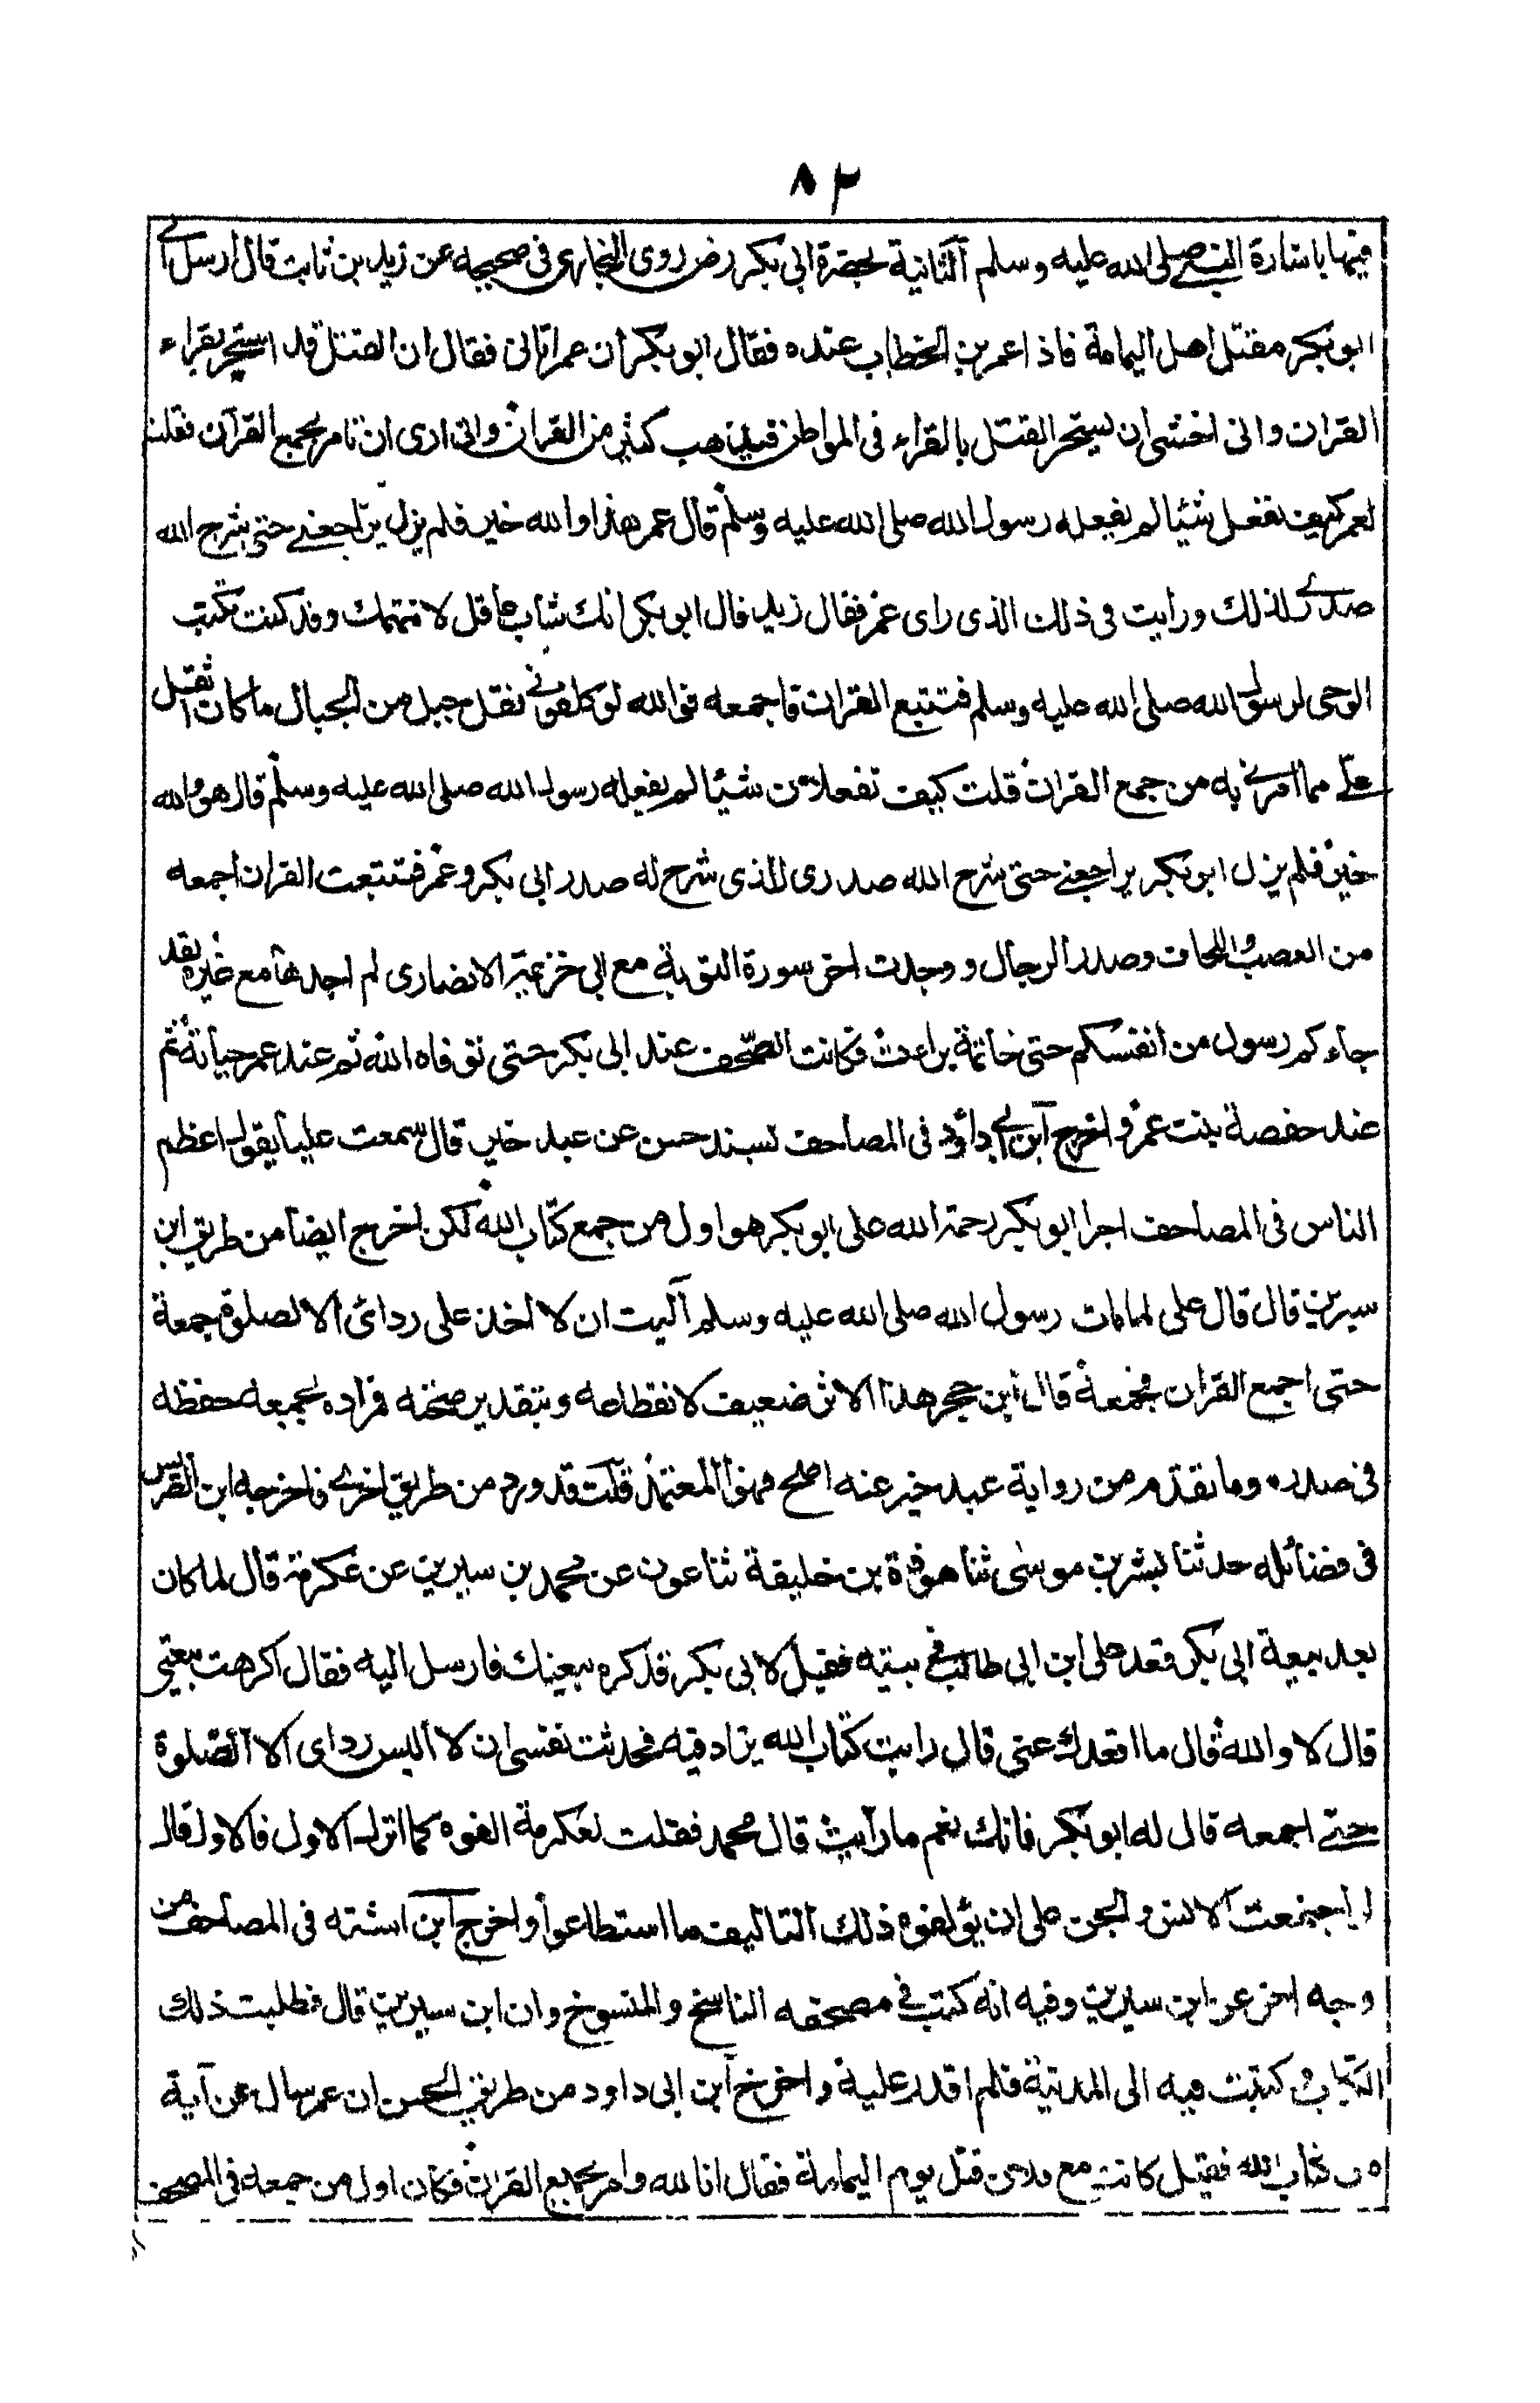 ٨٢
فيها باشارة النبي صلى الله عليه وسلم الثانية بحضرة ابى بكر رض روى البخارى فى صحيحه عن زيد بن ثابت قال ارسل الے
ابو بكر مقتل اهل اليمامة فاذا عمر بن الخطاب عنده فقال ابو بكر ان عمر اتانى فقال ان القتل قد استحر بقراء
القران وانى اخشى ان يستحر القتل بالقراء فى المواطن فيذهب كثير من القران وانى ارى ان تامر بجمع القرآن فقلت
لعمر كيف نفعل شيئا لم يفعله رسول الله صلى الله عليه وسلم قال عمر هذا والله خير فلم يزل يراجعنے حتى شرح الله
صدرے لذلك ورايت فى ذلك الذى راى عمر فقال زيد قال ابو بكر انك شاب عاقل لا نتهمك وقد كنت تكتب
الوحى لرسول الله صلى الله عليه وسلم فتتبع القران فاجمعه فوالله لو كلفونے نقل جبل من الجبال ما كان اثقل
علےّ مما امرنے به من جمع القران قلت كيف تفعلان شيئا لم يفعله رسول الله صلى الله عليه وسلم قال هو والله
خير فلم يزل ابو بكر يراجعنے حتى شرح الله صدرى للذى شرح له صدر ابى بكر وعمر فتتبعت القران اجمعه
من العصب واللخاف وصدر الرجال ووجدت اخر سورة التوبة مع ابى خزيمة الانصارى لم اجدها مع غيره لقد
جاءكم رسول من انفسكم حتى خاتمة براءة فكانت الصحف عند ابى بكر حتى توفاه الله ثم عند عمر حياته ثم
عند حفصة بنت عمر واخرج ابن ابى داؤد فى المصاحف بسند حسن عن عبد خير قال سمعت عليا يقول اعظم
الناس فى المصاحف اجرا ابو بكر رحمة الله على ابو بكر هو اول من جمع كتاب الله لكن اخرج ايضا من طريق ابن
سيرين قال قال على لما مات رسول الله صلى الله عليه وسلم آليت ان لا اخذ على ردائى الا لصلوة جمعة
حتى اجمع القران فجمعه قال ابن حجر هذا الاثر ضعيف لانقطاعه وبتقدير صحته فمراده بجمعه حفظه
فى صدره وما تقدم من رواية عبد خير عنه اصح فهو المعتمد قلت قد ورد من طريق اخرے فاخرجه ابن الضريس
فى فضائله حدثنا بشر بن موسى ثنا هوذة بن خليفة ثنا عون عن محمد بن سيرين عن عكرمة قال لما كان
بعد بيعة ابى بكر قعد على ابن ابى طالب فے بيته فقيل لابى بكر قد كره بيعتك فارسل اليه فقال اكرهت بيعتى
قال لا والله قال ما اقعدك عنى قال رايت كتاب الله يزاد فيه فحدثت نفسى ان لا البس رداى الا الصلوة
حتے اجمعه قال له ابو بكر فانك نعم ما رأيت قال محمد فقلت لعكرمة الفوه كما انزل الاول فالاول قال
لو اجتمعت الانس والجن على ان يؤلفوه ذلك التاليف ما استطاعوا واخرج ابن اشته فى المصاحف من
وجه اخر عن ابن سيرين وفيه انه كتب فے مصحفه الناسخ والمنسوخ وان ابن سيرين قال فطلبت ذلك
الكتاب وكتبت فيه الى المدينة فلم اقدر عليه واخرج ابن ابى داود من طريق الحسن ان عمر سال عن آية
من كتاب الله فقيل كانت مع فلان قتل يوم اليمامة فقال انا لله وامر بجمع القران فكان اول من جمعه فى المصحف